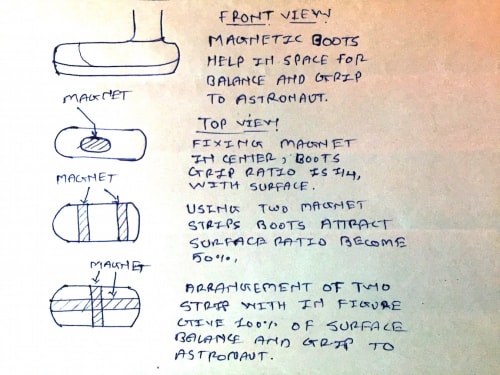 FRONT VIEW
MAGNETIC BOOTS
HELP IN SPACE FOR
BALANCE AND GRIP
TO ASTRONAUT.
MAGNET
TOP VIEW
FIXING MAGNET
IN CENTER, BOOTS
GRIP RATIO IS 1/4,
WITH SURFACE.
MAGNET
USING TWO MAGNET
STRIPS BOOTS ATTRACT
SURFACE RATIO BECOME
50%.
MAGNET
ARRANGEMENT OF TWO
STRIP WITH IN FIGURE
GIVE 100% OF SURFACE
BALANCE AND GRIP TO
ASTRONAUT.